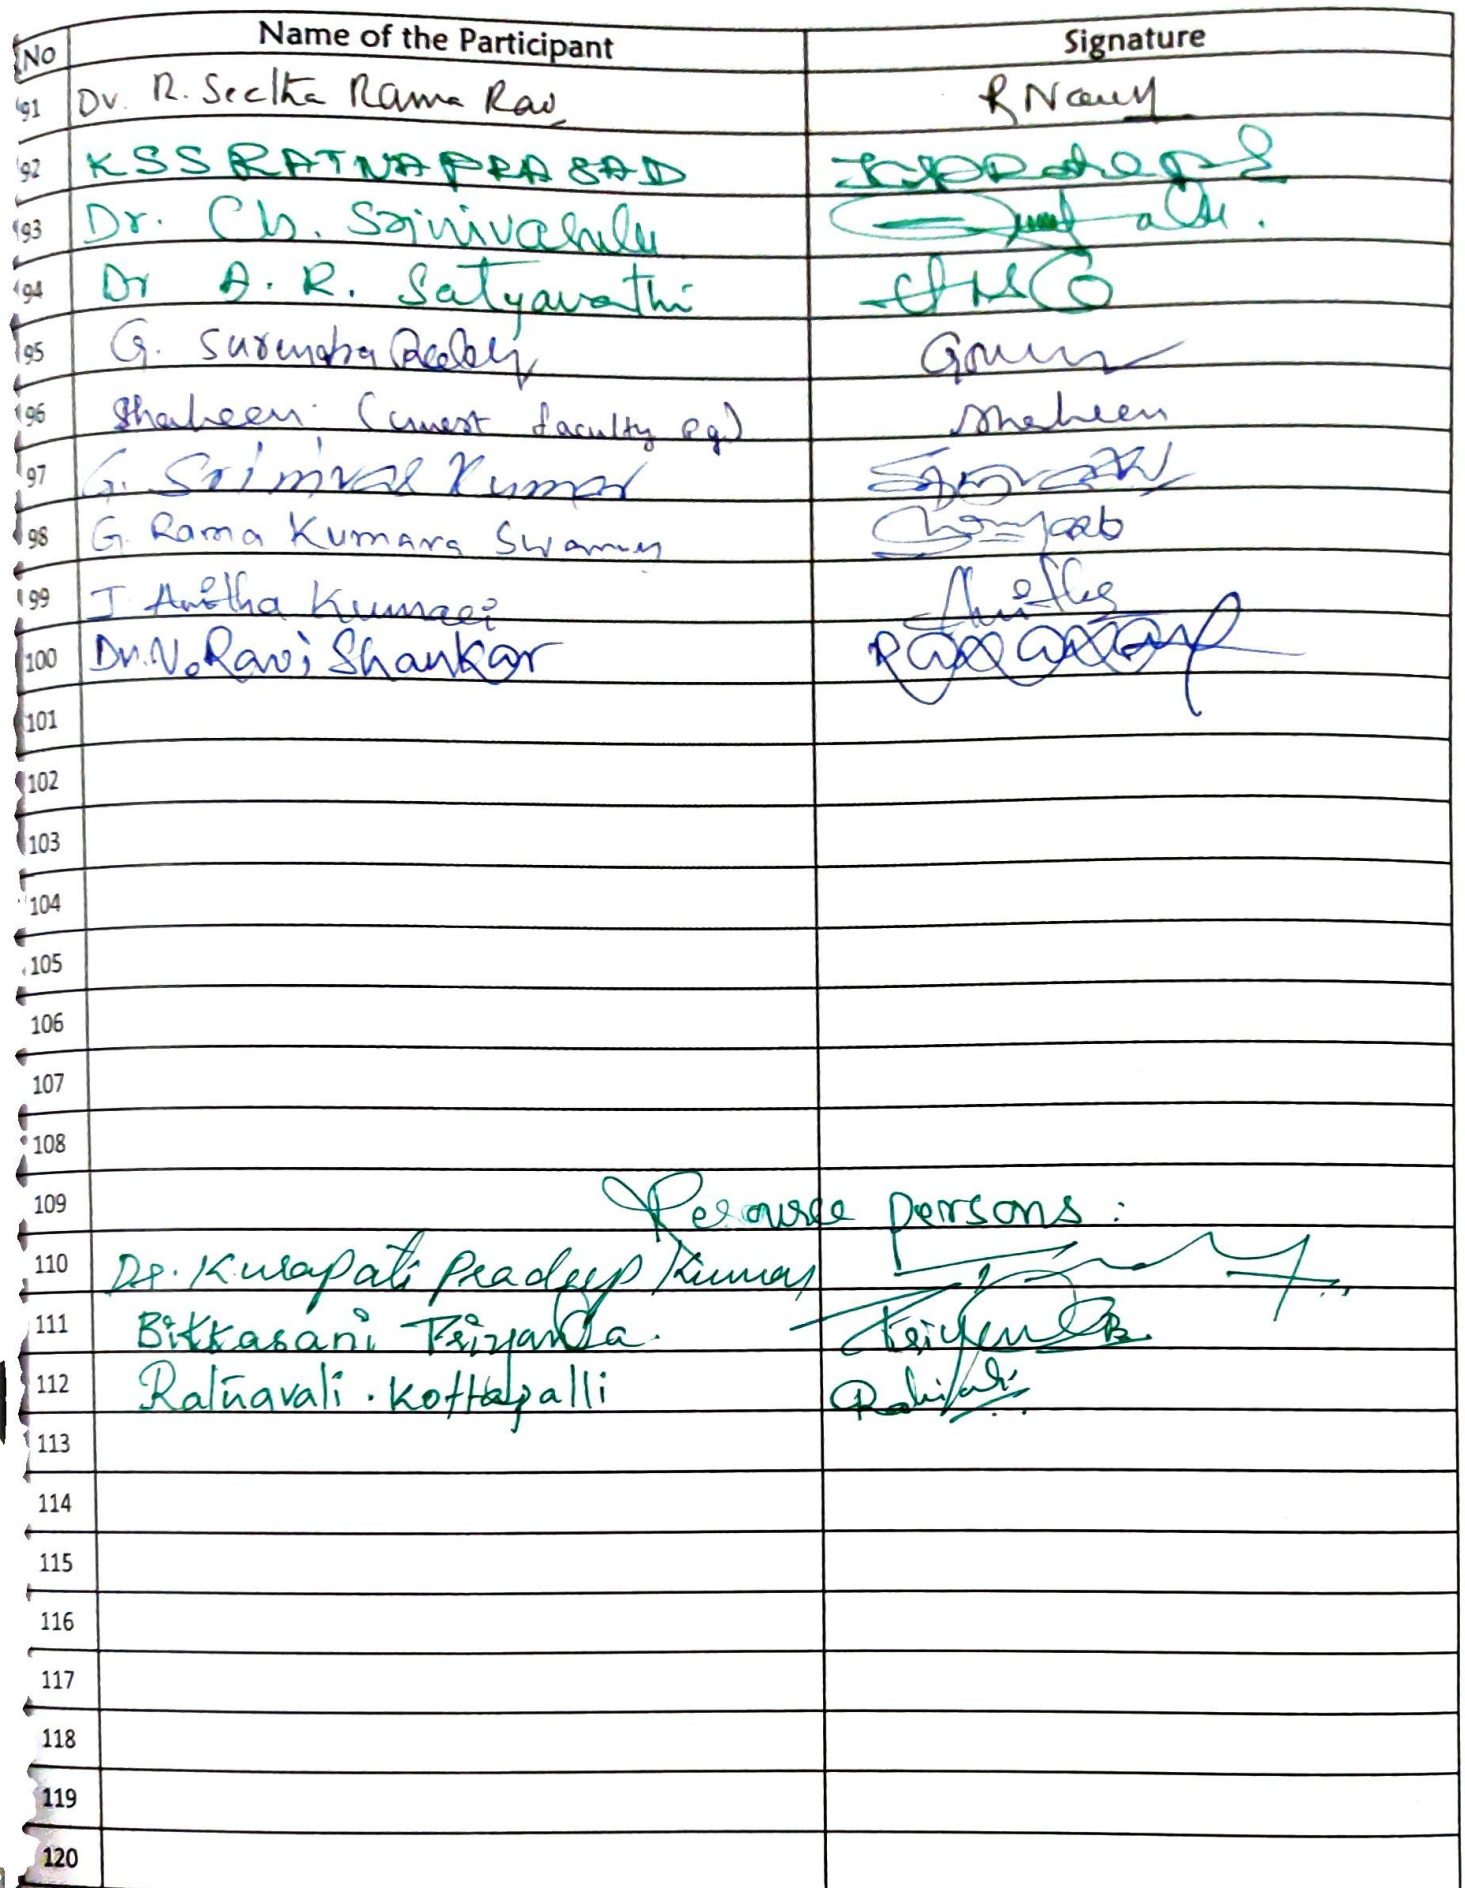 No Name of the Participant Signature
91 Dr. R. Seetha Rama Rao
92 KSS RATNA PRASAD
93 Dr. Ch. Srinivasulu
94 Dr A. R. Satyavathi
95 G. Surendra Reddy
96 Shaheen (Guest faculty pg) Shaheen
97 G. Srinivas Kumar
98 G. Rama Kumara Swamy
99 J Anitha Kumari Anitha
100 Dr. V. Ravi Shankar
101
102
103
104
105
106
107
108
109 Resource persons:
110 Dr. Kurapati Pradeep Kumar
111 Bikkasani Priyanka.
112 Ratnavali. Kottapalli
113
114
115
116
117
118
119
120